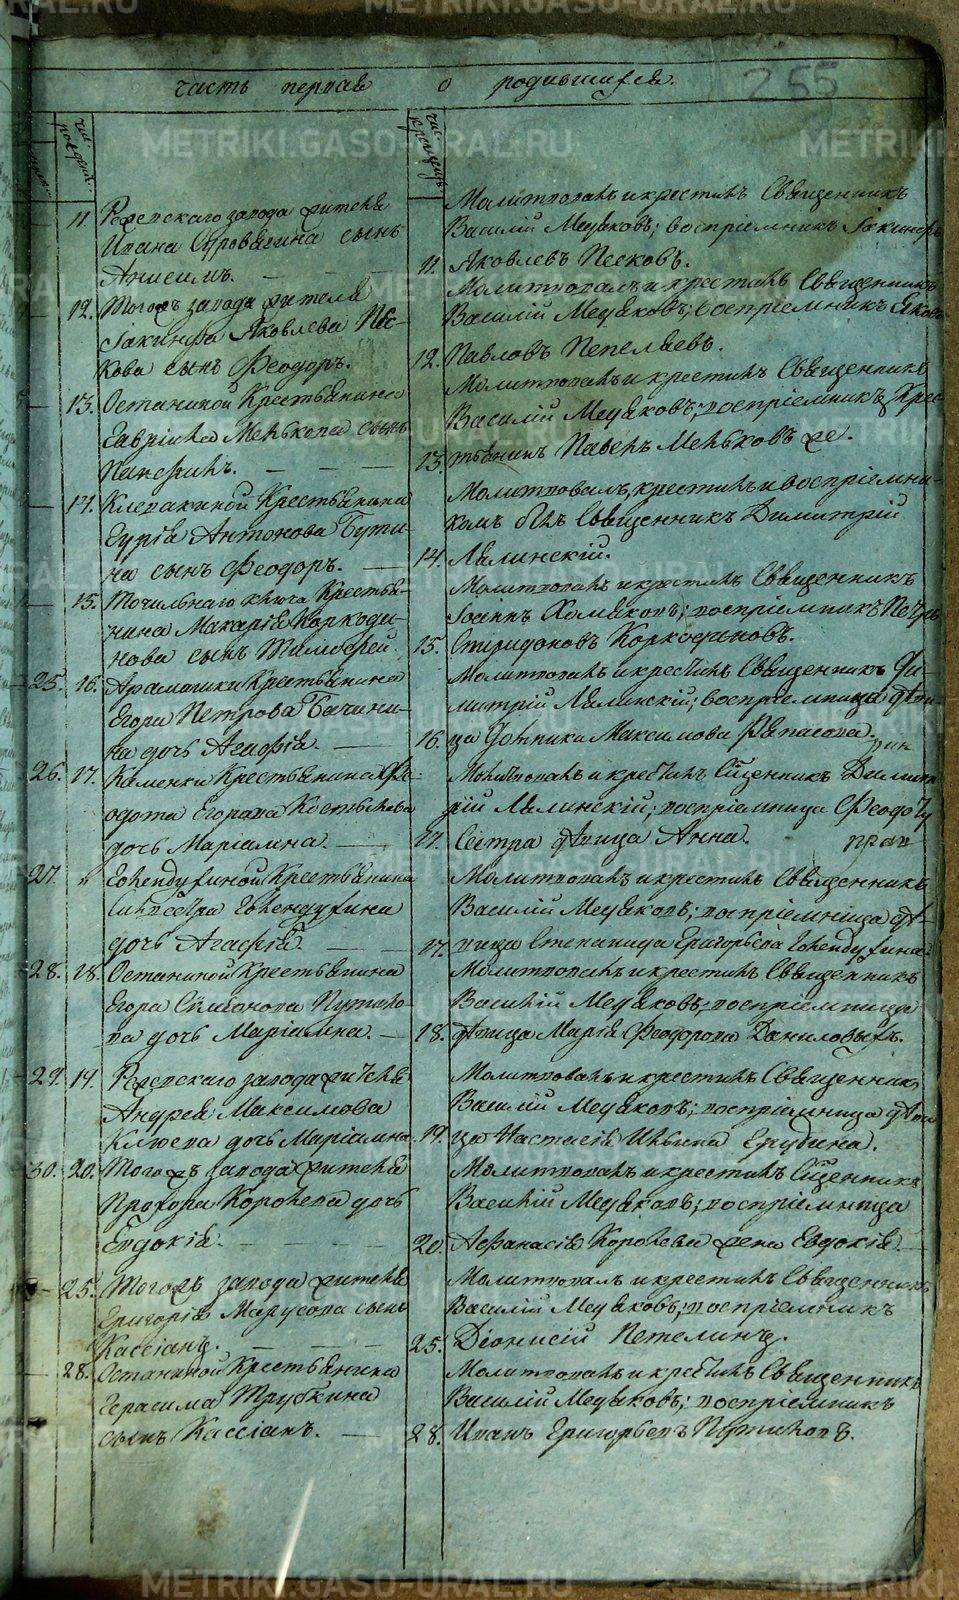 METRIKI.GASO-URAL.RU
часть первая о родившихся.
255
11. Режевскаго завода жителя
Ивана Стровагина сынъ
Анисимъ.
Молитвовалъ и крестилъ Священникъ
Василій Медяковъ; воспріемникъ Іакинѳъ
11. Яковлевъ Песковъ.
12. Тогожъ завода жителя
Іакинфа Яковлева Пес-
кова сынъ Феодоръ.
Молитвовалъ и крестилъ Священникъ
Василій Медяковъ; воспріемникъ Яковъ
12. Павловъ Пепеляевъ.
13. Останиной Крестьянина
Гавріила Менькова сынъ
Панфилъ.
Молитвовалъ и крестилъ Священникъ
Василій Медяковъ; воспріемникъ Крес-
13. тьянинъ Павелъ Меньковъ же.
14. Клевакиной Крестьянина
Гурія Антонова Бути-
на сынъ Феодоръ.
Молитвовалъ, крестилъ и воспріемни-
комъ былъ Священникъ Димитрій
14. Лялинскій.
15. Точильнаго ключа Крестья-
нина Макарія Коркоди-
нова сынъ Тимофей.
Молитвовалъ и крестилъ Священникъ
Іоаннъ Хомяковъ; воспріемникъ Петръ
15. Спиридоновъ Коркодиновъ.
25. 16. Арамашки Крестьянина
Егора Петрова Бачини-
на дочь Агафія.
Молитвовалъ и крестилъ Священникъ Ди-
митрій Лялинскій; воспріемница дѣви-
16. ца Максимова
26. 17. Каменки Крестьянина Фе-
одота Егорова Костылева
дочь Маріамна.
Молитвовалъ и крестилъ Сщенникъ Димит-
рій Лялинскій; воспріемница Феодоту
17. Сестра дѣвица Анна.
27. " Голендухиной Крестьянина
Сильвестра Голендухина
дочь Агафія.
Молитвовалъ и крестилъ Священникъ
Василій Медяковъ; воспріемница дѣ-
17. вица Степанида Григорьева Голендухина.
28. 18. Останиной Крестьянина
Егора Сімеонова Путило-
ва дочь Маріамна.
Молитвовалъ и крестилъ Священникъ
Василій Медяковъ; воспріемница
18. дѣвица Марія Феодорова Даниловыхъ.
29. 19. Режевскаго завода жителя
Андрея Максимова
Клюева дочь Маріамна.
Молитвовалъ и крестилъ Священникъ
Василій Медяковъ; воспріемница дѣви-
19. ца Настасія Ильина Ерубина.
30. 20. Тогожъ завода жителя
Прохора Королева дочь
Евдокія.
Молитвовалъ и крестилъ Сщенникъ
Василій Медяковъ; воспріемница
20. Афанасія Королева жена Евдокія.
25. Тогожъ завода жителя
Григорія Марусова сынъ
Кассіанъ.
Молитвовалъ и крестилъ Священникъ
Василій Медяковъ; воспріемникъ
25. Діонисій Петелинъ.
28. Останиной Крестьянина
Герасима Трубкина
сынъ Кассіанъ.
Молитвовалъ и крестилъ Священникъ
Василій Медяковъ; воспріемникъ
28. Иванъ Григорьевъ Путиловъ.